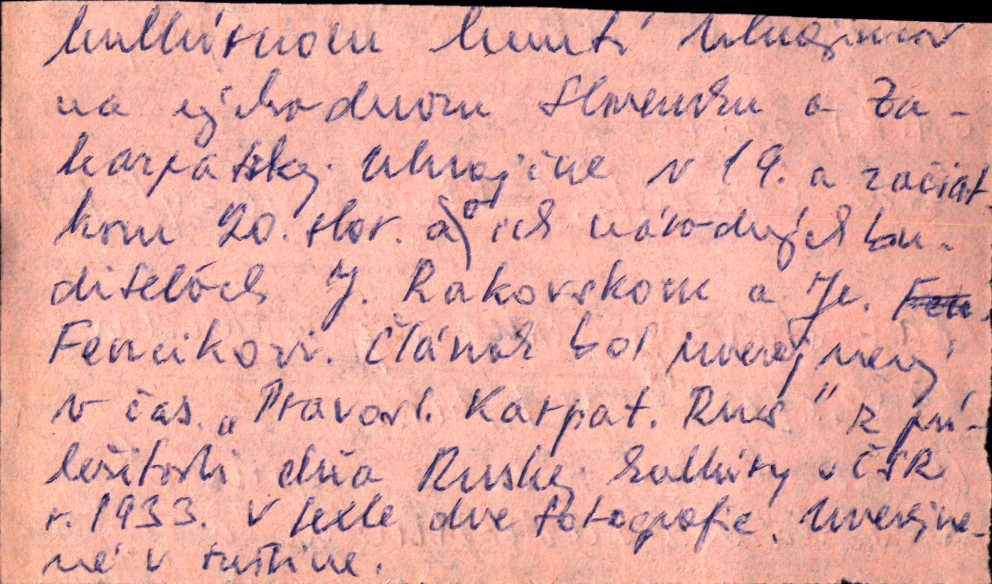 kultúrnom hnutí Ukrajincov
na východnom Slovensku a Za-
karpatskej Ukrajine v 19. a začiat-
kom 20. stor. a o ich národných bu-
diteľoch J. Rakovskom a Je. Fen.
Fencikovi. Článok bol uverejnený
v čas. „Pravosl. Karpat. Rus" k prí-
ležitosti dňa Ruskej kultúry v ČSR
r. 1933. V texte dve fotografie. Uverejne-
né v ruštine.